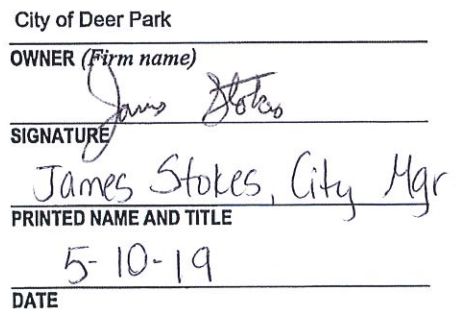 City of Deer Park
OWNER (Firm name)
James Stokes
SIGNATURE
James Stokes, City Mgr
PRINTED NAME AND TITLE
5-10-19
DATE